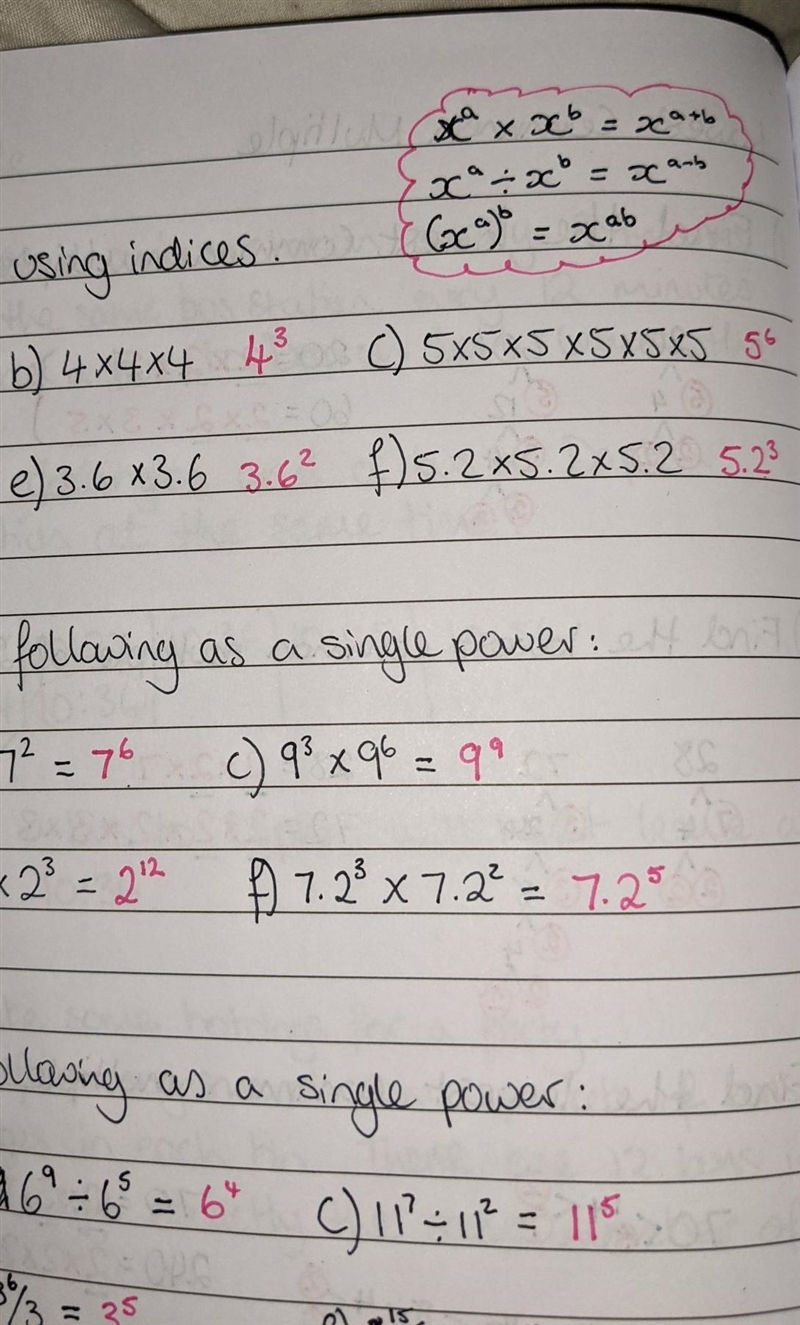 xᵃ × xᵇ = xᵃ⁺ᵇ
xᵃ ÷ xᵇ = xᵃ⁻ᵇ
(xᵃ)ᵇ = xᵃᵇ
using indices.
b) 4×4×4 4³ c) 5×5×5×5×5×5 5⁶
e) 3.6×3.6 3.6² f) 5.2×5.2×5.2 5.2³
following as a single power:
7² = 7⁶ c) 9³ × 9⁶ = 9⁹
× 2³ = 2¹² f) 7.2³ × 7.2² = 7.2⁵
ollowing as a single power:
6⁹ ÷ 6⁵ = 6⁴ c) 11⁷ ÷ 11² = 11⁵
⁶/3 = 3⁵